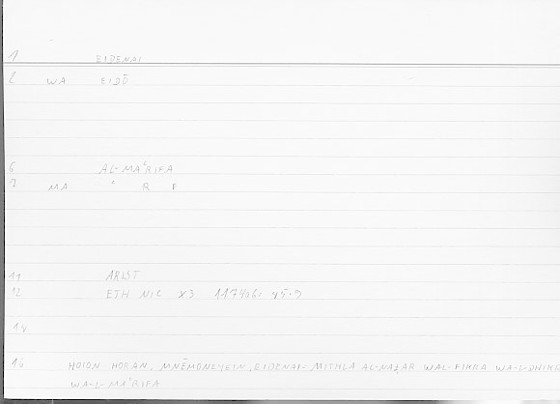 1 EIDENAI
2 WA EIDŌ
6 AL-MAʿRIFA
7 MA ʿ R F
11 ARIST
12 ETH NIC
14 HOION HORAN, MNĒMONEUEIN, EIDENAI - MITHLA AL-NAẒAR WAL-FIKRA
WA-L-MAʿRIFA